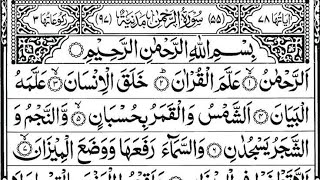 اٰیَاتُهَا ۷۸ (۵۵) سُوْرَةُ الرَّحْمٰنِ مَدَنِیَّةٌ (۹۷) رُكُوْعَاتُهَا ۳
بِسْمِ اللّٰهِ الرَّحْمٰنِ الرَّحِیْمِ
اَلرَّحْمٰنُ ۙ﴿۱﴾ عَلَّمَ الْقُرْاٰنَ ؕ﴿۲﴾ خَلَقَ الْاِنْسَانَ ۙ﴿۳﴾ عَلَّمَهُ
الْبَیَانَ ﴿۴﴾ اَلشَّمْسُ وَ الْقَمَرُ بِحُسْبَانٍ ۪﴿۵﴾ وَّ النَّجْمُ وَ
الشَّجَرُ یَسْجُدٰنِ ﴿۶﴾ وَ السَّمَآءَ رَفَعَهَا وَ وَضَعَ الْمِیْزَانَ ۙ﴿۷﴾